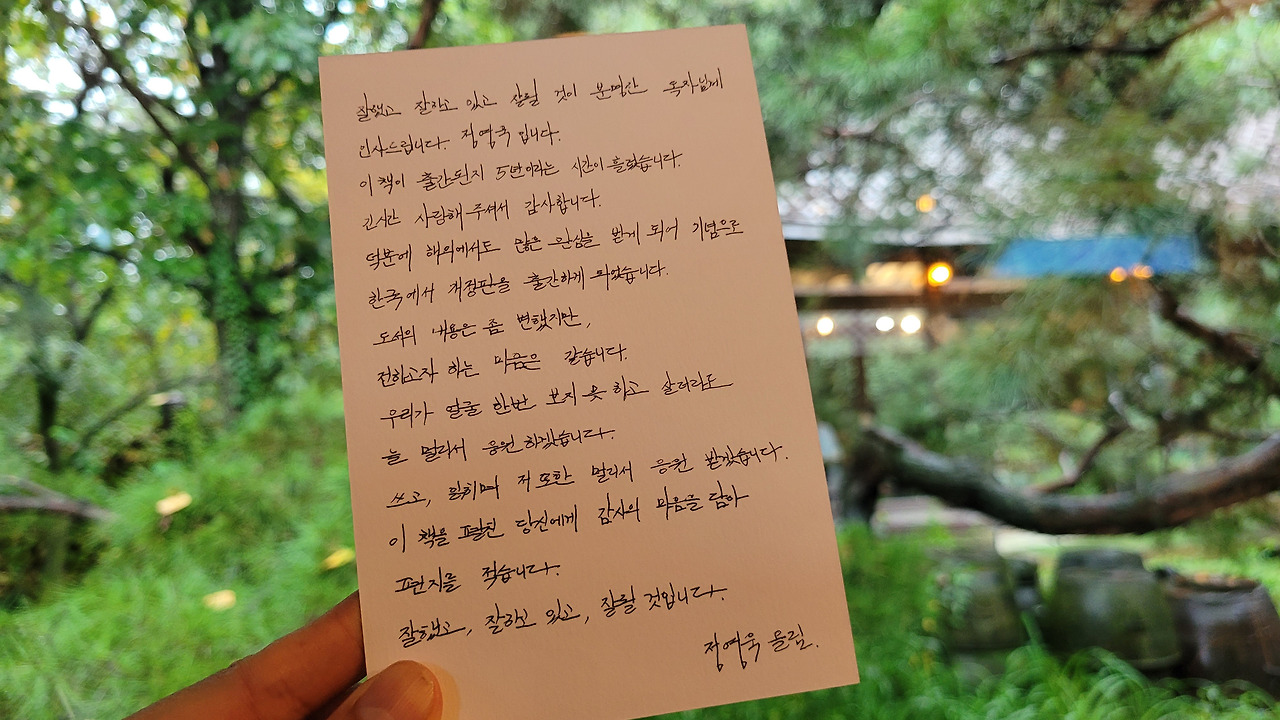 잘했고 잘하고 있고 잘될 것이 분명한 독자님께
인사드립니다. 정영욱 입니다.
이 책이 출간된지 5년이라는 시간이 흘렀습니다.
긴시간 사랑해 주셔서 감사합니다.
덕분에 해외에서도 많은 관심을 받게 되어 기념으로
한국에서 개정판을 출간하게 되었습니다.
도서의 내용은 좀 변했지만,
전하고자 하는 마음은 같습니다.
우리가 얼굴 한번 보지 못 하고 살더라도
늘 멀리서 응원하겠습니다.
쓰고, 읽히며 저 또한 멀리서 응원 받겠습니다.
이 책을 펼친 당신에게 감사의 마음을 담아
편지를 적습니다.
잘했고, 잘하고 있고, 잘될 것입니다.
정영욱 올림.